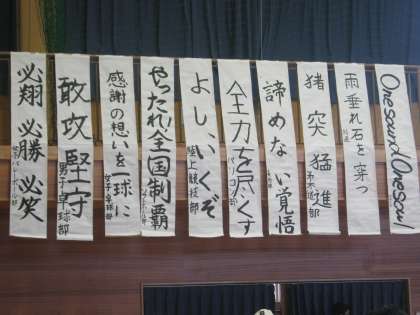 One sound One soul
雨垂れ石を穿つ
猪突猛進
諦めない覚悟
全力を尽くす
よし、いくぞ
陸上競技部
やったれ!全国制覇
感謝の想いを一球に
女子卓球部
敢攻堅守
男子卓球部
必翔 必勝 必笑